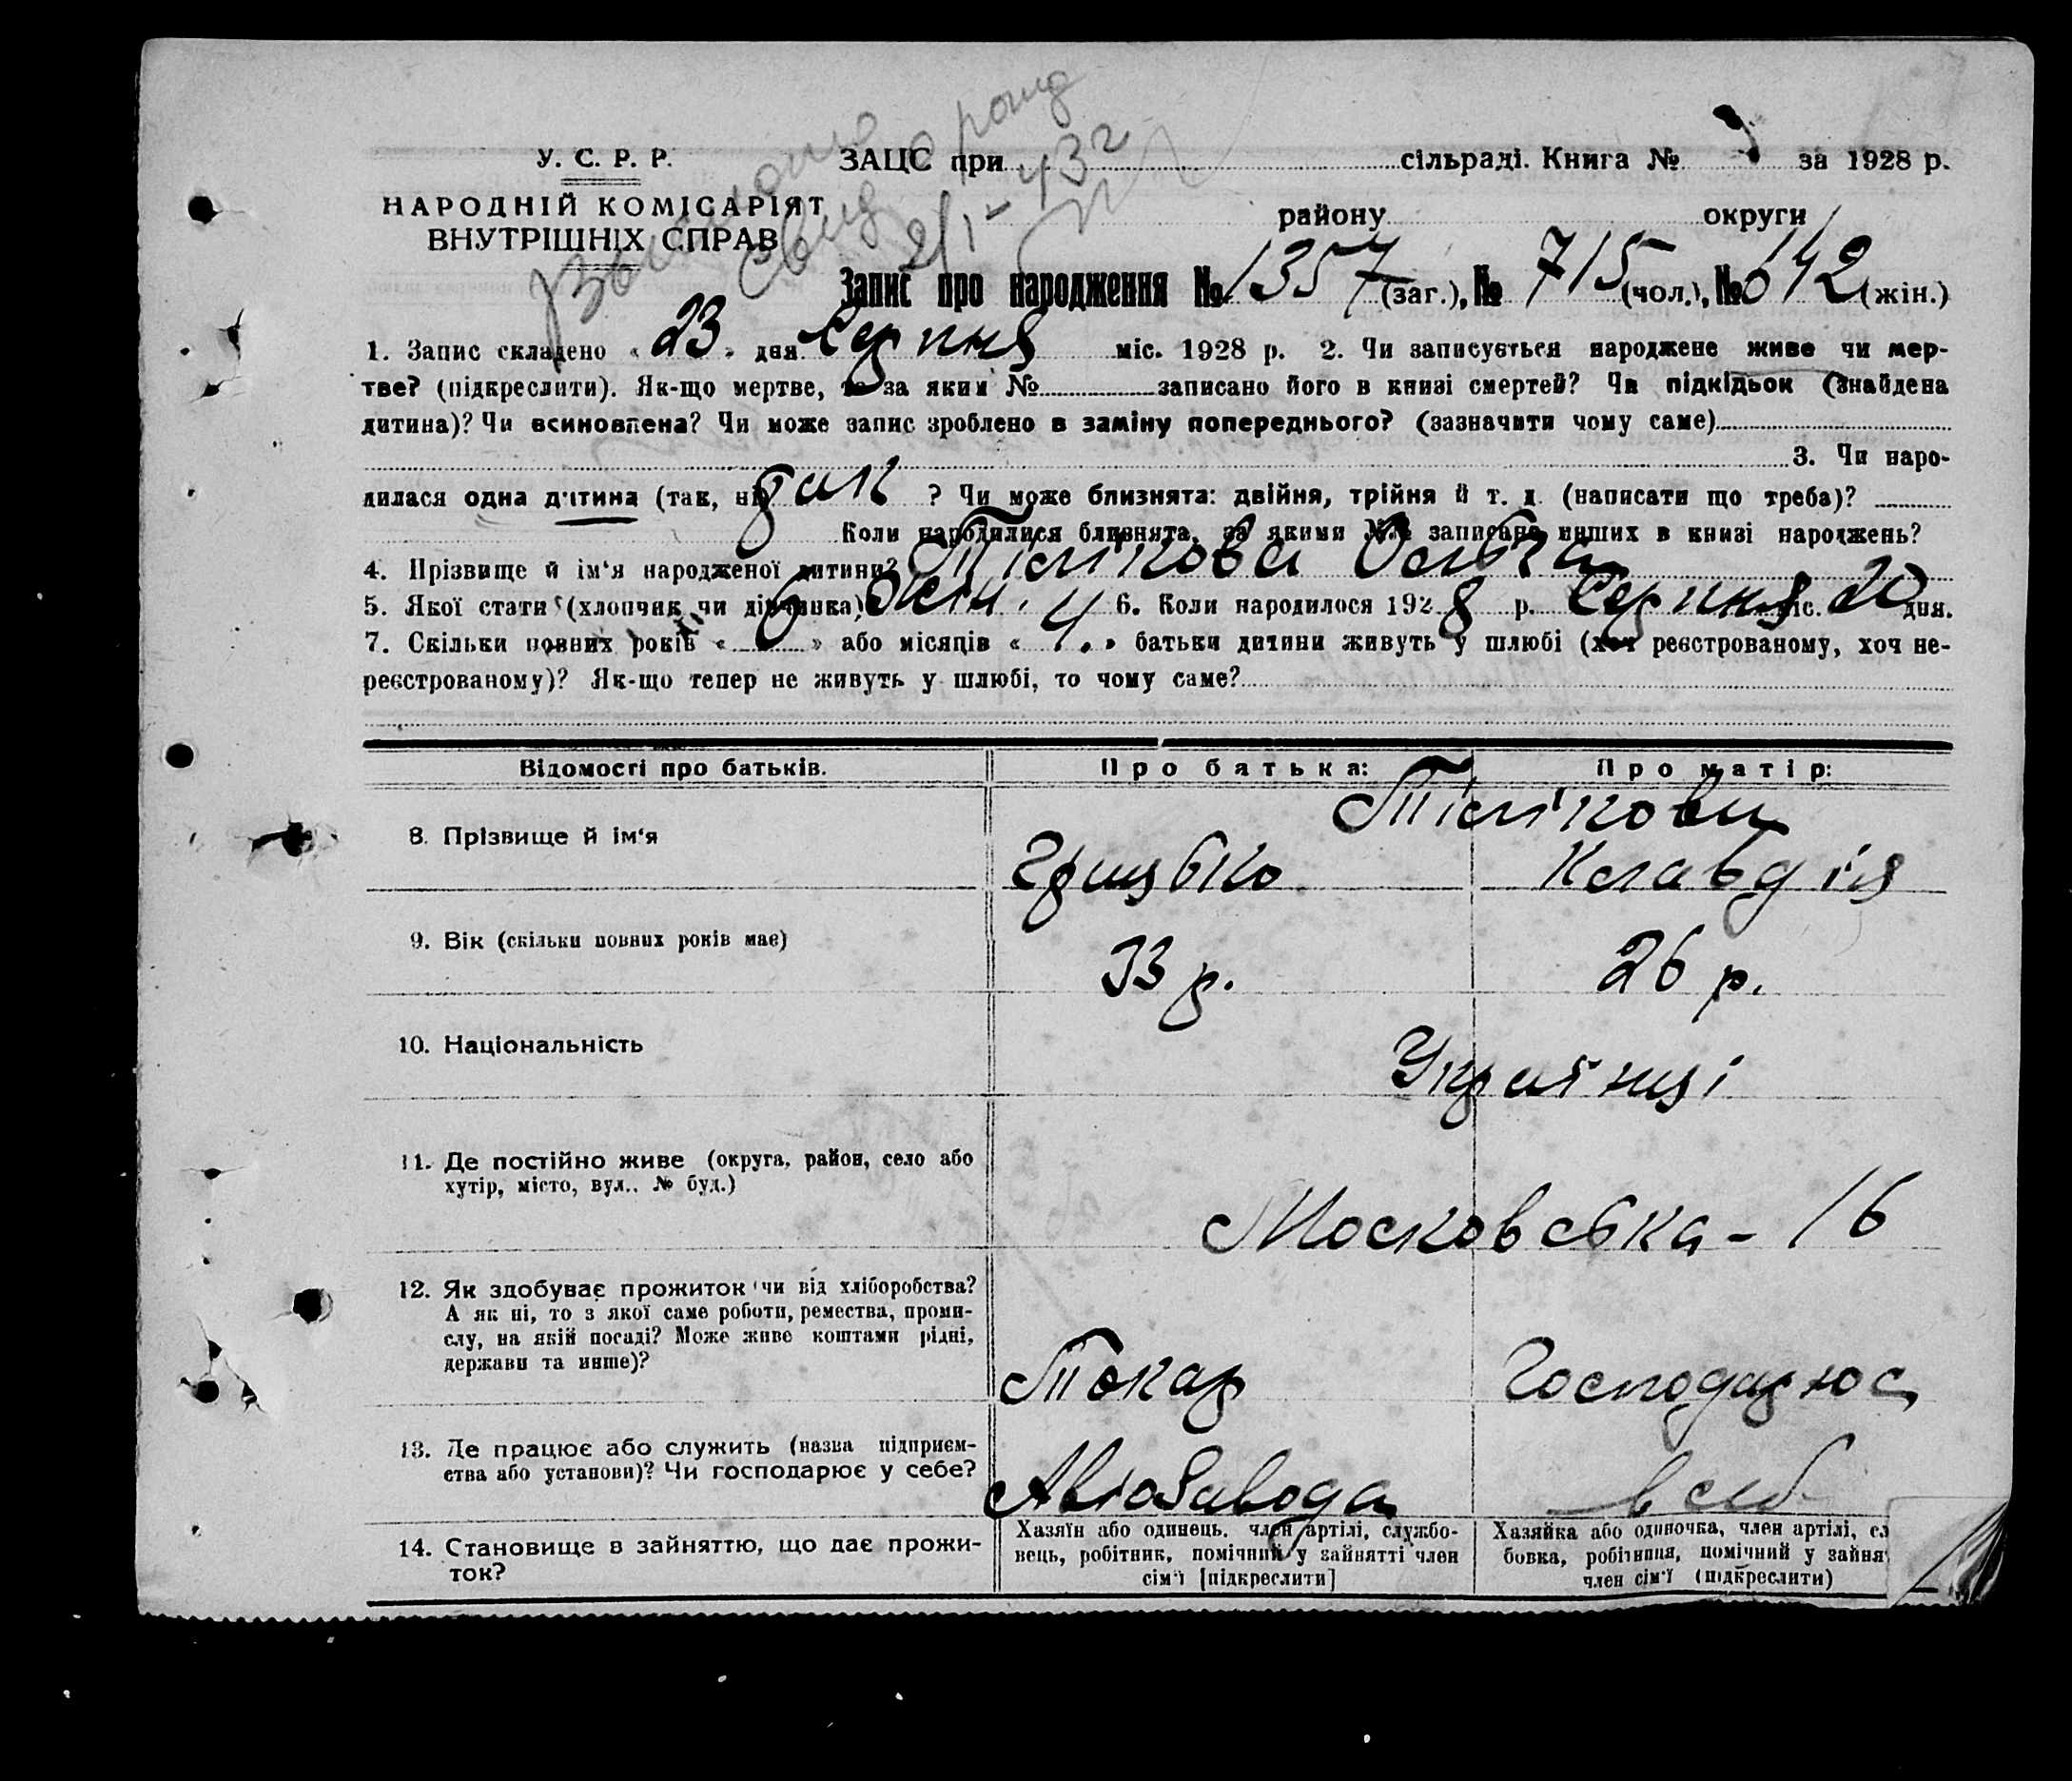 Виписано
свид. о рожд
2/1-43г
У. С. Р. Р.
НАРОДНІЙ КОМІСАРІЯТ
ВНУТРІШНІХ СПРАВ
ЗАЦС при сільраді. Книга № за 1928 р.
району округи
Запис про народження № 1357 (заг.), № 715 (чол.), № 642 (жін.)
1. Запис складено « 23 » дня Серпня міс. 1928 р. 2. Чи записується народжене живе чи мер-
тве? (підкреслити). Як-що мертве, то за яким № записано його в книзі смертей? Чи підкідьок (знайдена
дитина)? Чи всиновлена? Чи може запис зроблено в заміну попереднього? (зазначити чому саме)
3. Чи наро-
дилася одна дитина (так, ні) так ? Чи може близнята: двійня, трійня й т. д. (написати що треба)?
Коли народилися близнята, за якими №№ записано инших в книзі народжень?
4. Прізвище й ім'я народженої дитини? Тісмікова Ольга
5. Якої стати (хлопчик чи дівчинка) жін. 6. Коли народилося 1928 р. Серпня міс. 20 дня.
7. Скільки повних років « 6 » або місяців « 4. » батьки дитини живуть у шлюбі (хоч реєстрованому, хоч не-
реєстрованому)? Як-що тепер не живуть у шлюбі, то чому саме?
Відомості про батьків. Про батька: Про матір:
8. Прізвище й ім'я
Грицько Клавдія
9. Вік (скільки повних років має) 33 р. 26 р.
10. Національність Українці
11. Де постійно живе (округа, район, село або
хутір, місто, вул., № буд.)
Московська - 16
12. Як здобуває прожиток чи від хліборобства?
А як ні, то з якої саме роботи, ремества, проми-
слу, на якій посаді? Може живе коштами рідні,
держави та инше)?
Токар Господарює
13. Де працює або служить (назва підприєм-
ства або установи)? Чи господарює у себе?
АвтоЗавода в себ
14. Становище в зайняттю, що дає прожи-
ток?
Хазяїн або одинець, член артілі, службо-
вець, робітник, помічний у зайнятті член
сім'ї [підкреслити]
Хазяйка або одиночка, член артілі, сл
бовка, робітниця, помічний у зайня
член сім'ї (підкреслити)